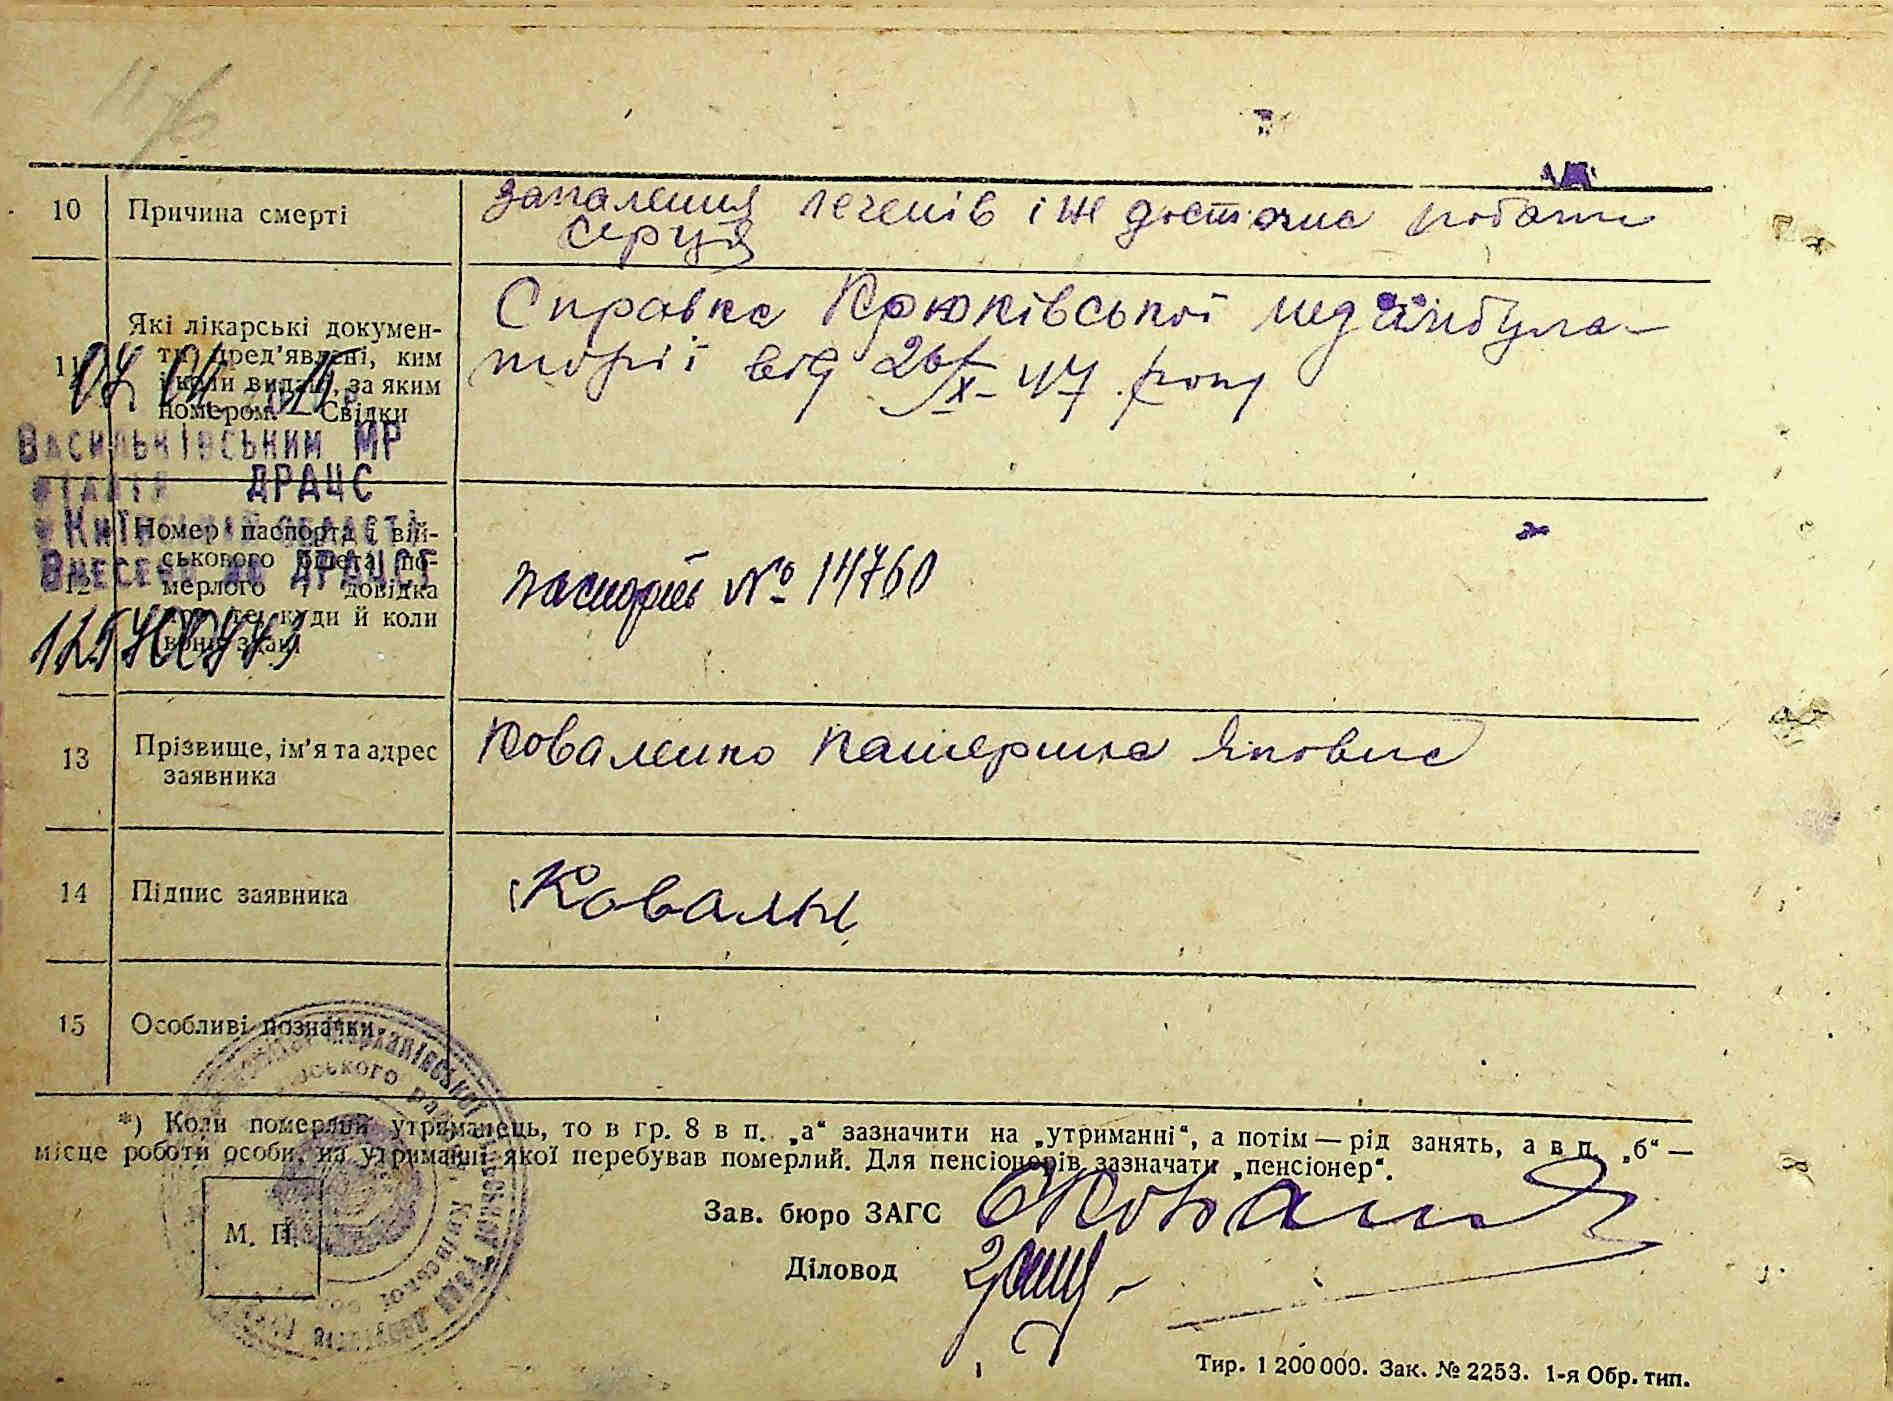 10 Причина смерті
запалення легенів і не достачна роботи
серця
11 Які лікарські докумен-
ти пред'явлені, ким
і коли видані, за яким
номером. Свідки
Справка Крюківської медамбула-
торії від 26/IX-47 року
Васильківським МР
ДРАЦС
Київській області
Внесено до ДРАЦСГ
12 Номер паспорта і вій-
ськового білета по-
мерлого і довідка
про те, куди й коли
вони здані
паспорт № 14760
13 Прізвище, ім'я та адрес
заявника
Коваленко Катерина Яковна
14 Підпис заявника
Ковалн
15 Особливі позначки
*) Коли померлий утриманець, то в гр. 8 в п. „а“ зазначити на „утриманні“, а потім — рід занять, а в п. „б“ —
місце роботи особи, на утриманні якої перебував померлий. Для пенсіонерів зазначати „пенсіонер“.
М. П.
Зав. бюро ЗАГС
Діловод
Тир. 1 200 000. Зак. № 2253. 1-я Обр. тип.